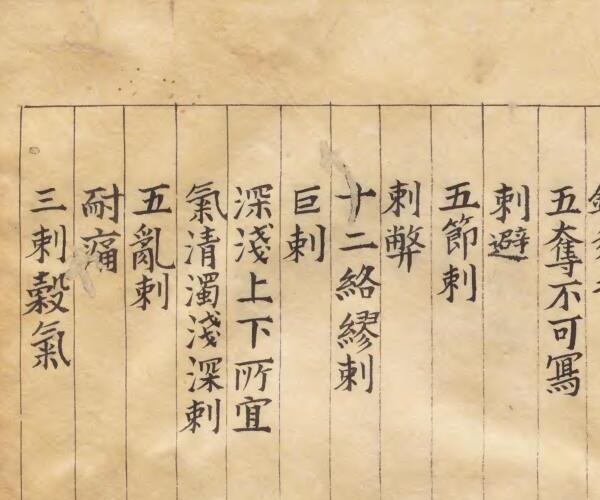 五奪不可寫
刺避
五節刺
刺弊
十二絡繆刺
巨刺
深淺上下所宜
氣清濁淺深刺
五亂刺
耐痛
三刺穀氣